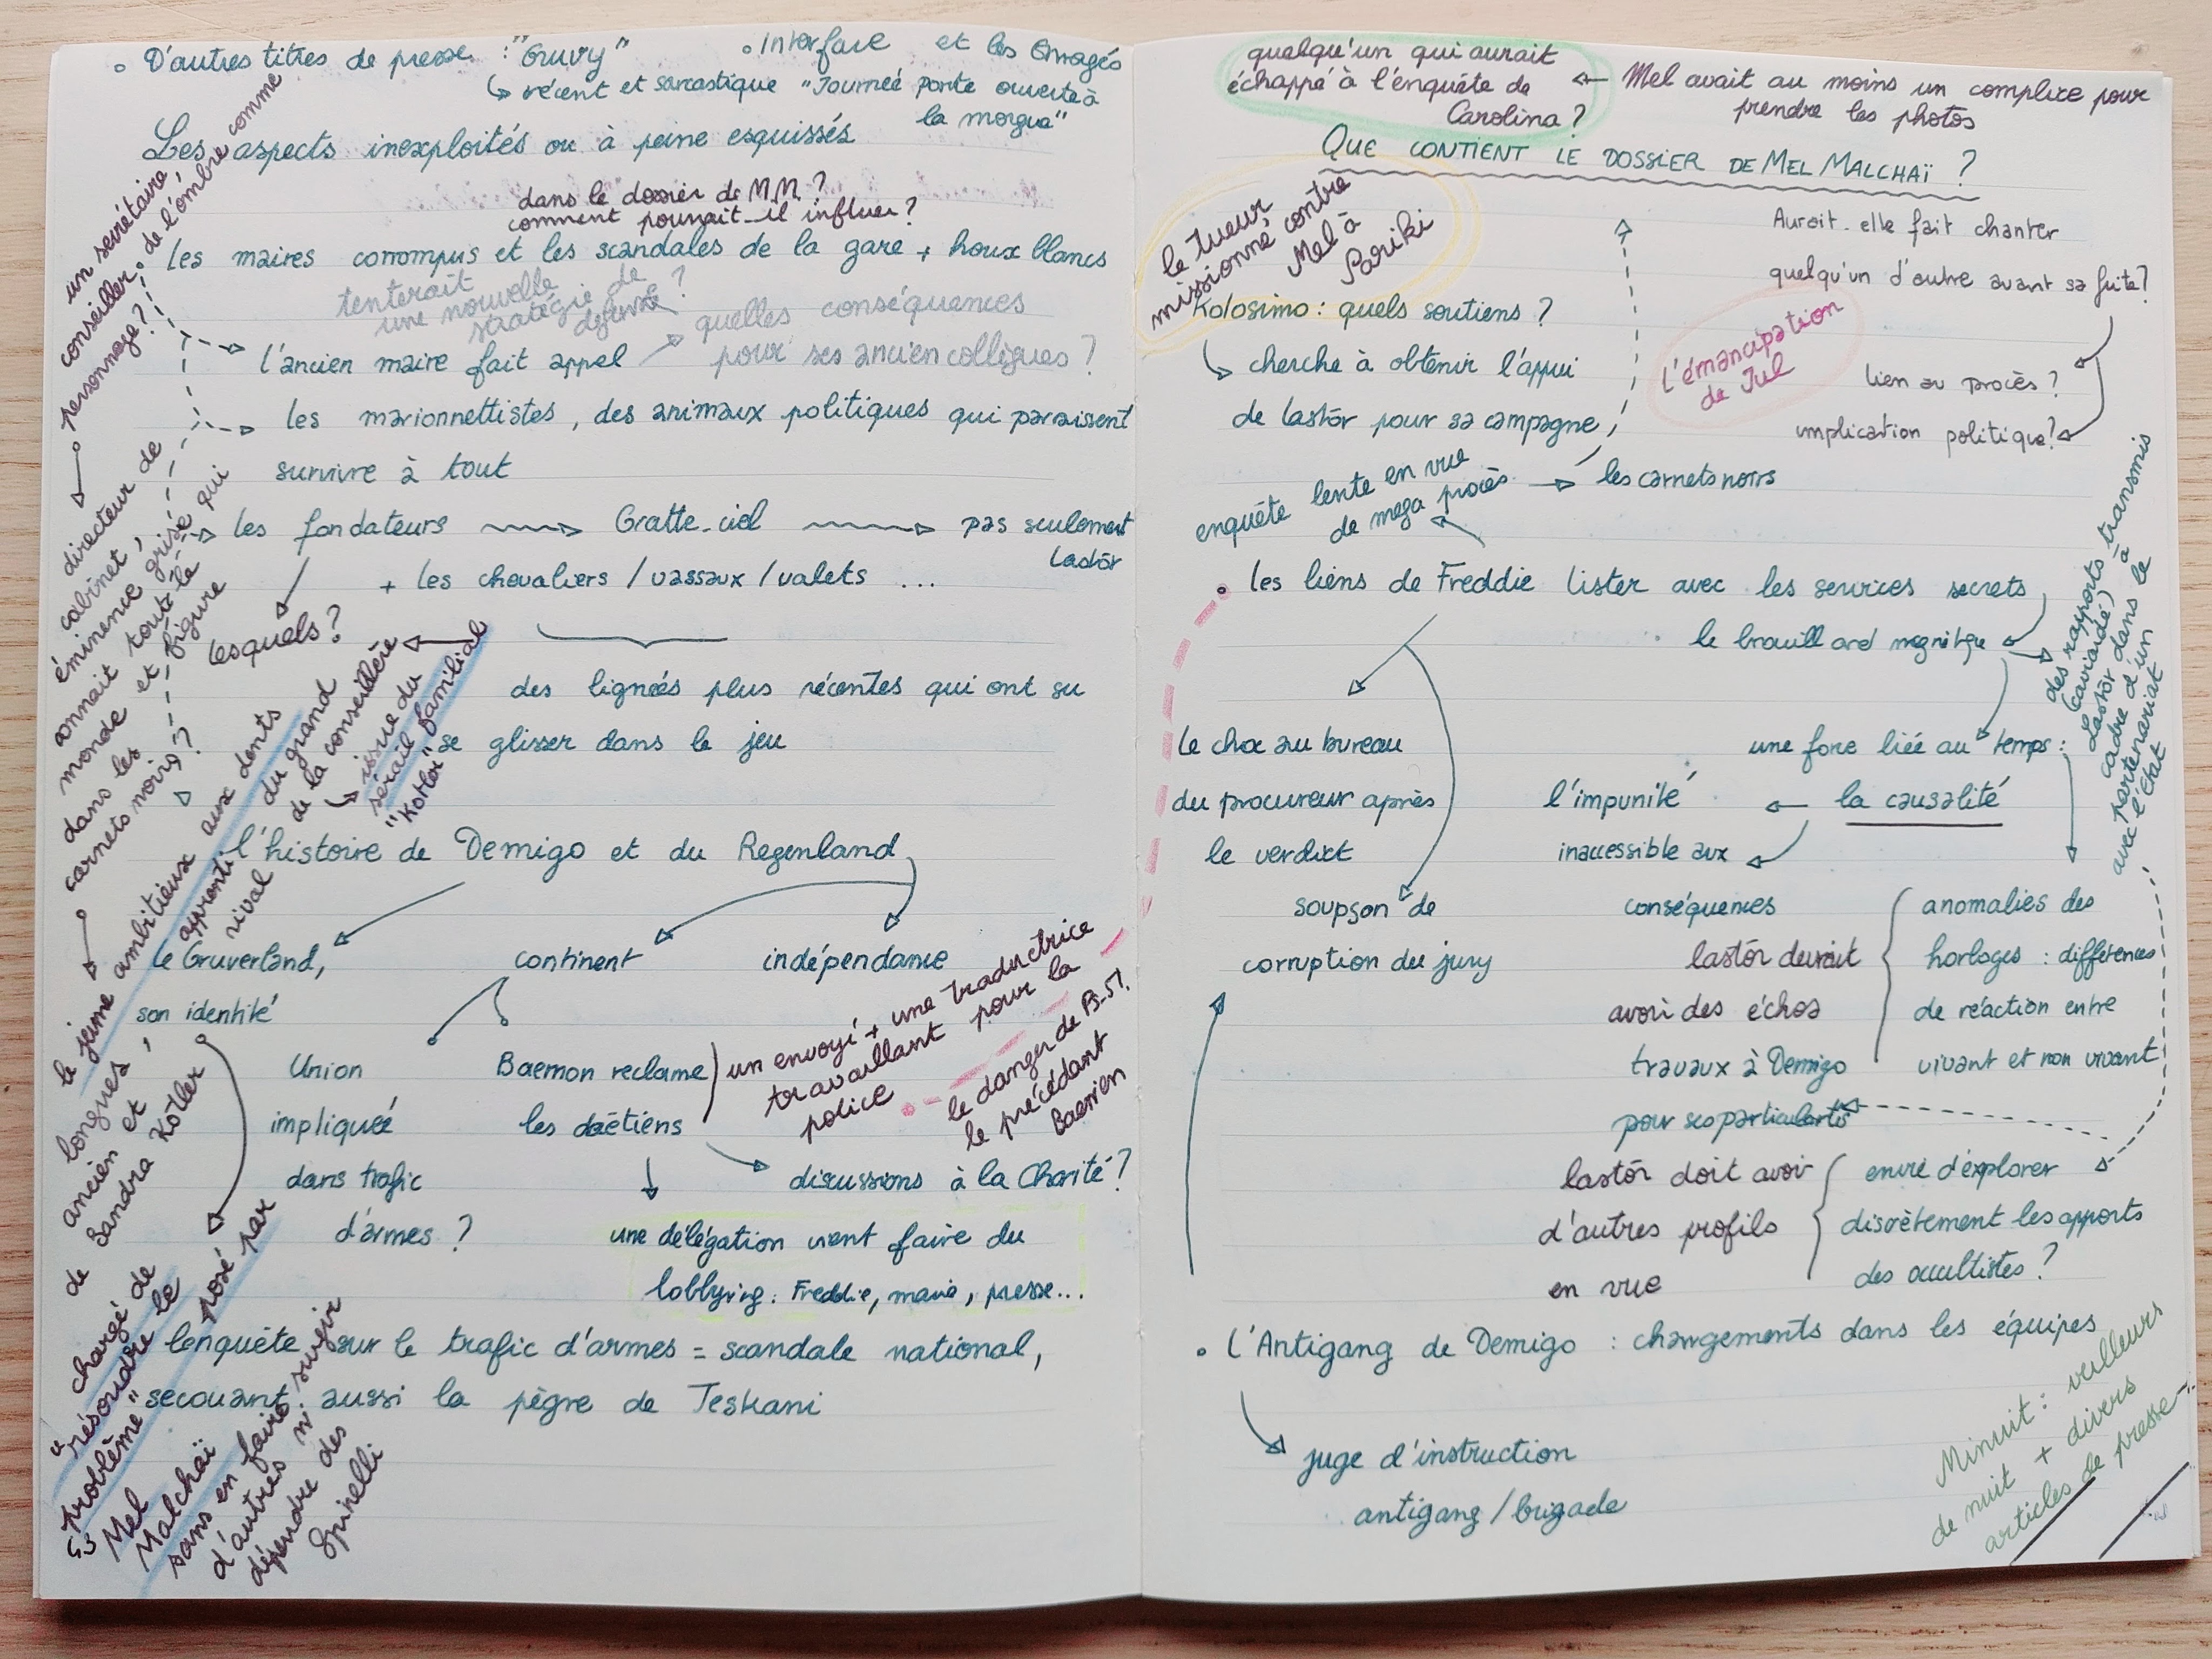 D'autres titres de presse : "Gruvy"
↳ récent et sarcastique "Journée porte ouverte à
la morgue"
• Interface et les Émagés
Les aspects inexploités ou à peine esquissés
dans le dossier de M.M. ?
comment pourrait-il influer ?
les maires corrompus et les scandales de la gare + houx blancs
tenterait
une nouvelle
stratégie de
défense ?
l'ancien maire fait appel
quelles conséquences
pour ses ancien collègues ?
les marionnettistes, des animaux politiques qui paraissent
survivre à tout
les fondateurs → Gratte-ciel → pas seulement
Lastōr
+ les chevaliers / vassaux / valets ...
lesquels ?
des lignées plus récentes qui ont su
se glisser dans le jeu
l'histoire de Demigo et du Regenland
le Gruverland,
son identité
continent
indépendance
Union
impliquée
dans trafic
d'armes ?
Baemon reclame
les daëtiens
un envoyé + une traductrice
travaillant pour la
police
le danger de Ps-51.
le précédant
Baemien
discussions à la Charité ?
une délégation vient faire du
lobbying : Freddie, mairie, presse...
l'enquête sur le trafic d'armes = scandale national,
secouant aussi la pègre de Teskani
un secrétaire,
conseiller de l'ombre comme
personnage ?
directeur de
cabinet,
éminence grise qui
connait tout le
monde et figure
dans les
carnets noirs ?
le jeune ambitieux aux dents
longues, apprenti du grand
rival de la conseillère
ancien et
de Sandra Kötler
issue du
sérail familial
"Kotler"
chargé de
"résoudre le
problème" posé par
Mel
Malchaï
sans en faire surgir
d'autres ni
dépendre des
Spinelli
quelqu'un qui aurait
échappé à l'enquête de
Carolina ?
← Mel avait au moins un complice pour
prendre les photos
QUE CONTIENT LE DOSSIER DE MEL MALCHAÏ ?
le tueur
missionné contre
Mel à
Pariki
Auroit-elle fait chanter
quelqu'un d'autre avant sa fuite ?
lien au procès ?
implication politique ?
L'émancipation
de Jul
Kolosimo : quels soutiens ?
↳ cherche à obtenir l'appui
de lastōr pour sa campagne
enquête lente en vue
de mega procès → les carnets noirs
• les liens de Freddie Lister avec les services secrets
le brouillard magnétique
des rapports transmis
(caviardés) à
Lastōr dans le
cadre d'un
partenariat
avec l'Etat
le choc au bureau
du procureur après
le verdict
soupson de
corruption du jury
une force liée au temps :
l'impunité ← la causalité
inaccessible aux
conséquences
lastōr devrait
avoir des échos
travaux à Demigo
pour ses particularités
anomalies des
horloges : différences
de réaction entre
vivant et non vivant
lastōr doit avoir
d'autres profils
en vue
envie d'explorer
discrètement les apports
des occultistes ?
• L'Antigang de Demigo : changements dans les équipes
juge d'instruction
antigang / brigade
Minuit : veilleurs
de nuit + divers
articles de presse